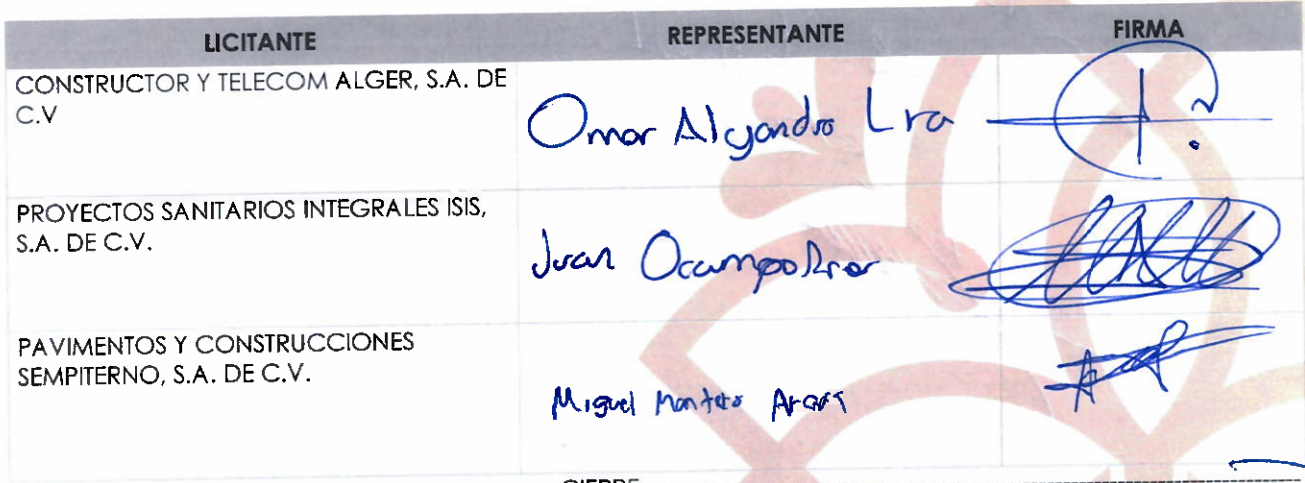 LICITANTE REPRESENTANTE FIRMA
CONSTRUCTOR Y TELECOM ALGER, S.A. DE
C.V
Omar Alejandro Lra
PROYECTOS SANITARIOS INTEGRALES ISIS,
S.A. DE C.V.
Juan Ocampo
PAVIMENTOS Y CONSTRUCCIONES
SEMPITERNO, S.A. DE C.V.
Miguel Montero
CIERRE